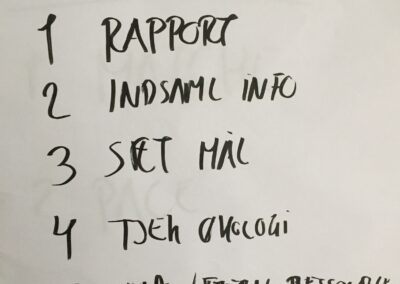 1 RAPPORT
2 INDSAML INFO
3 SÆT MÅL
4 TJEK ØKOLOGI